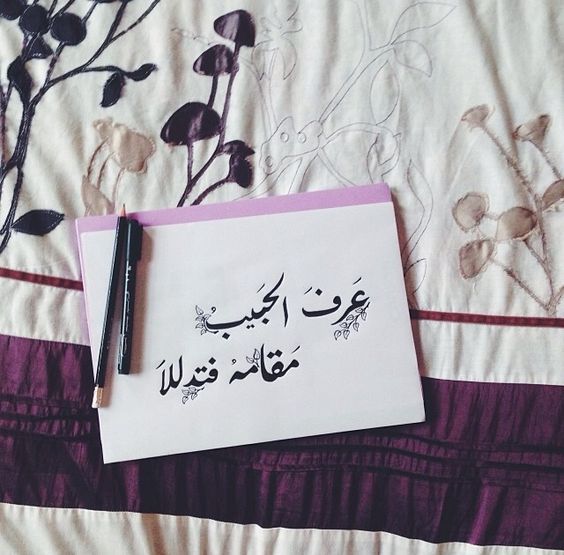 عَرفَ الحَبَيبُ
مَقامهُ فتدللاَ